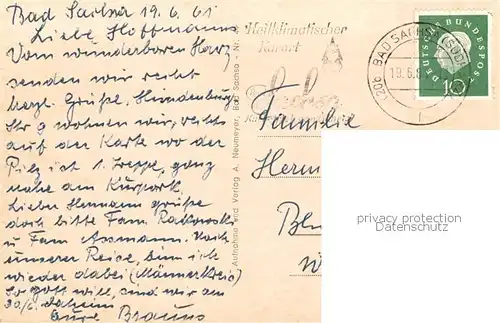 Bad Sachsa 19.6.61
Liebe Hoffmanns
Vom wunderbaren Harz
senden wir recht
herzl. Grüße, Hindenburg
str 9 wohnen wir, rechts
auf der Karte wo der
Pilz ist 1. Treppe, ganz
nahe am Kurpark.
Lieber Hermann grüße
doch bitte Fam. Ratkowski
u Fam Assmann. Nach
unserer Reise, bin ich
wieder dabei (Männerkreis)
So Gott will, sind wir am
30/6. daheim
Eure Brauns
Aufnahme und Verlag A. Neumeyer, Bad Sachsa - Nr.
Heilklimatischer
Kurort
(20b) BAD SACHSA (SÜDHARZ)
19.6.61
DEUTSCHE BUNDESPOST
10
Familie
Herm
privacy protection
Datenschutz